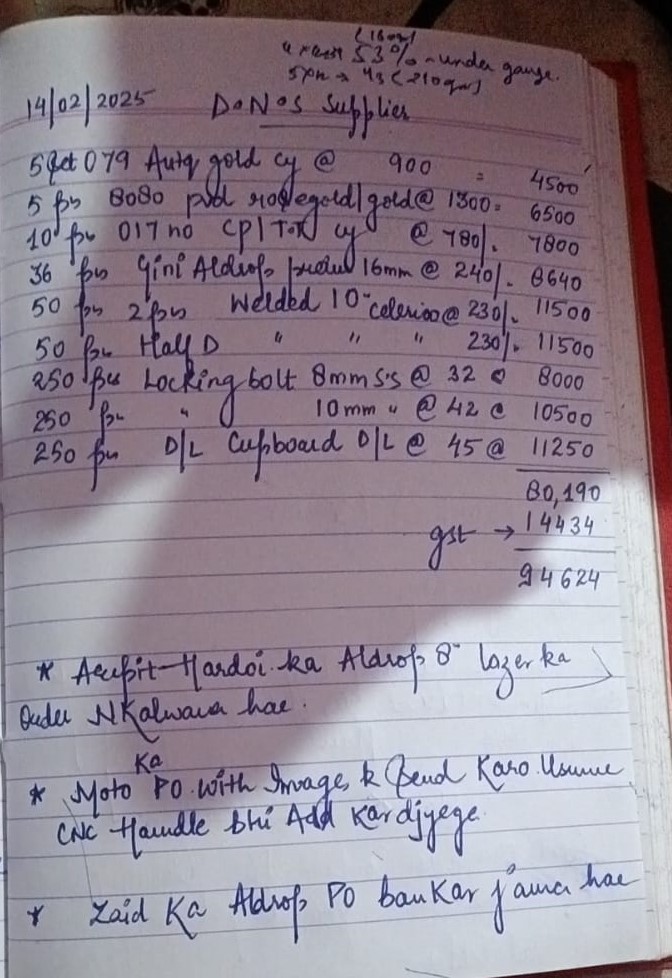 (16am)
53% - under gauge.
14/02/2025 D.N.S Supplier
5 set 079 Autq gold cy @ 900 = 4500
5 ps 8080 pvd rosegold/gold @ 1300 = 6500
10 ps 017 no CP/TOR cy @ 780/. 7800
36 ps Gini Aldrop 16mm @ 240/. 8640
50 ps 2 ps Welded 10" celerioo @ 230/. 11500
50 ps Half D " " " 230/. 11500
250 pcs Locking bolt 8mm S.S @ 32 @ 8000
250 ps " 10mm " @ 42 @ 10500
250 ps D/L Cupboard D/L @ 45 @ 11250
80,190
gst → 14434
94624
* Hardoi ka Aldrop 8" lazer ka
Order NKalwana hae.
Ka
* Moto PO with Image k Send Karo. Usume
CNC Handle bhi Add Kardjyege
* Zaid Ka Aldrop PO banKar jana hae